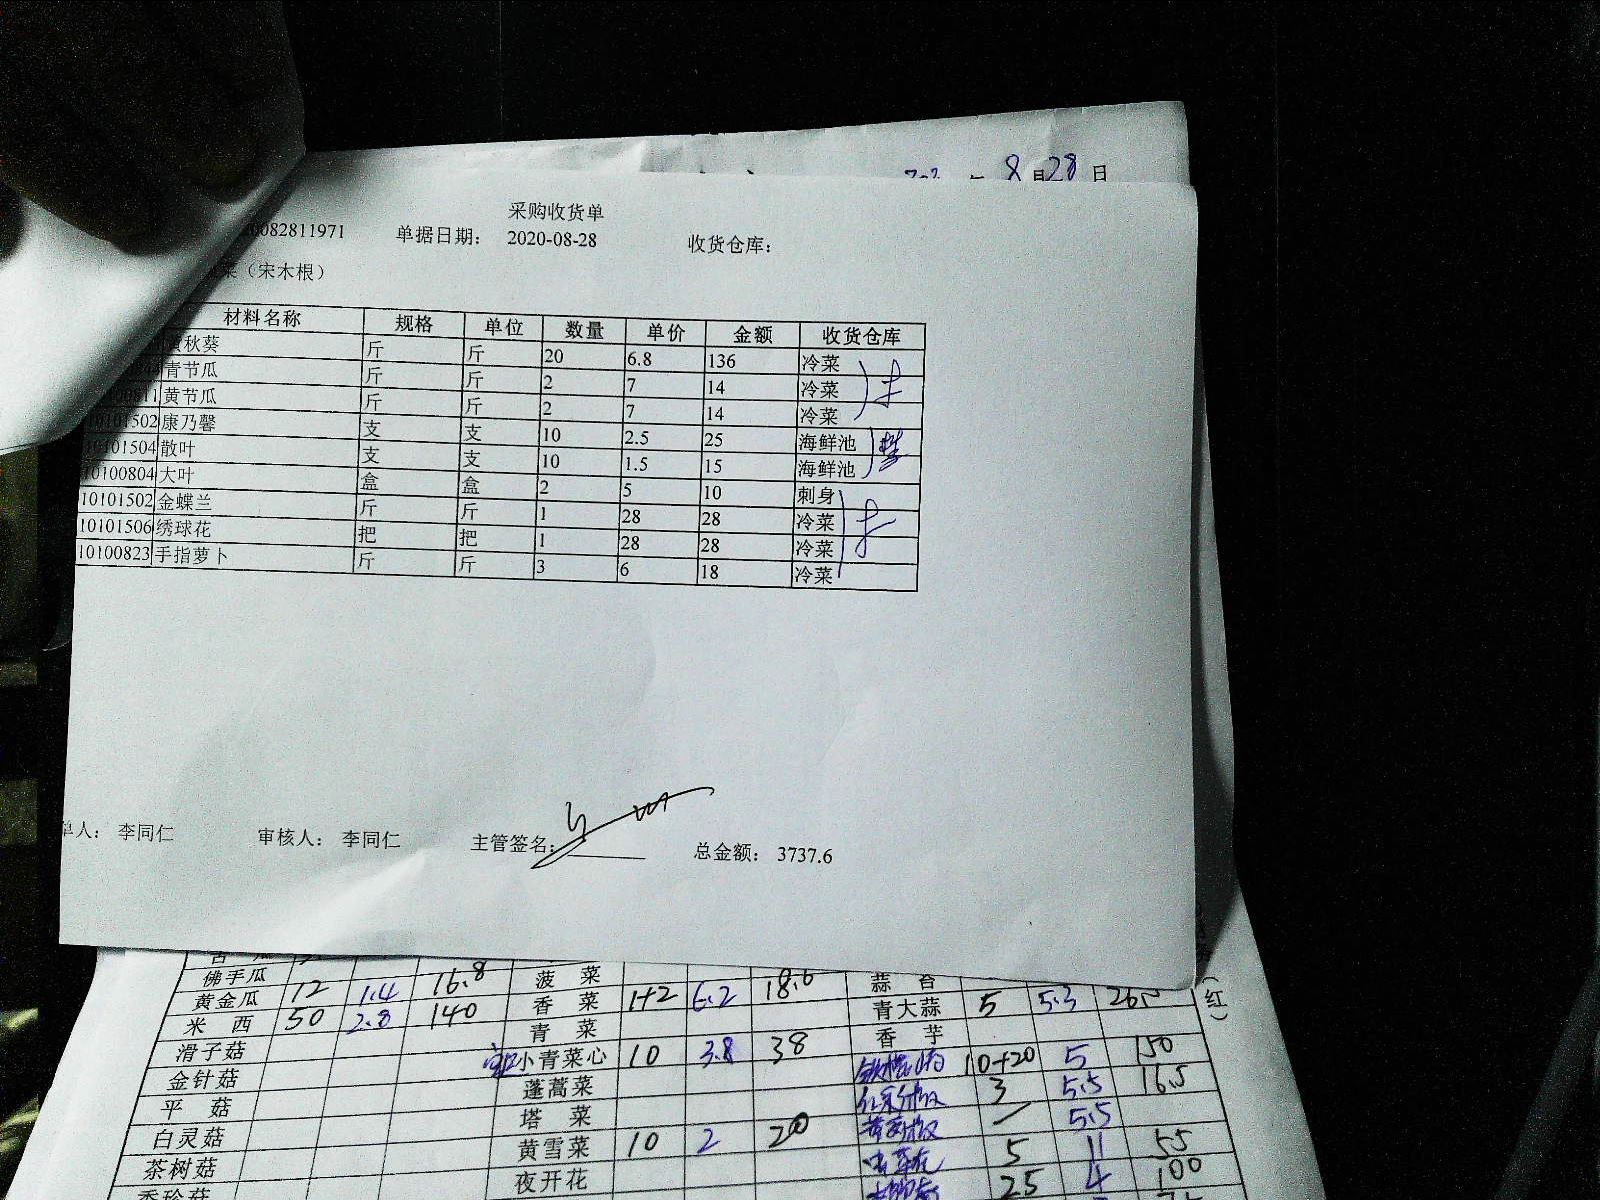 8月28日
采购收货单
0082811971 单据日期： 2020-08-28 收货仓库：
菜（宋木根）
材料名称 规格 单位 数量 单价 金额 收货仓库
秋葵 斤 斤 20 6.8 136 冷菜
青节瓜 斤 斤 2 7 14 冷菜
黄节瓜 斤 斤 2 7 14 冷菜
10101502 康乃馨 支 支 10 2.5 25 海鲜池
10101504 散叶 支 支 10 1.5 15 海鲜池
10100804 大叶 盒 盒 2 5 10 刺身
10101502 金蝶兰 斤 斤 1 28 28 冷菜
10101506 绣球花 把 把 1 28 28 冷菜
10100823 手指萝卜 斤 斤 3 6 18 冷菜
单人： 李同仁 审核人： 李同仁 主管签名： 总金额： 3737.6
佛手瓜 菠菜 18.6 蒜台
黄金瓜 12 1.4 16.8 香菜 1+2 6.2 青大蒜 5 5.3 26.5
米西 50 2.8 140 青菜 香芋
滑子菇 小青菜心 10 3.8 38 10+20 5 150
金针菇 蓬蒿菜 3 5.5 16.5
平菇 塔菜 5.5
白灵菇 黄雪菜 10 2 20 5 11 55
茶树菇 夜开花 25 4 100
（红）